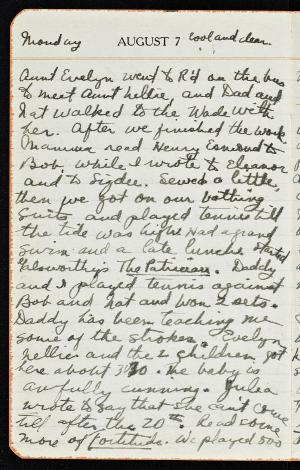 Monday AUGUST 7 cool and clear.
Aunt Evelyn went to R'd on the bus
to meet Aunt Nellie, and Dad and
Nat walked to the Wade with
her. After we finished the work
Mamma read Henry Esmond to
Bob while I wrote to Eleanor
and to Sizdee. Sewed a little,
then we got on our bathing
suits and played tennis till
the tide was high. Had a grand
swim and a late lunch. Started
Galsworthy's The Patrician. Daddy
and I played tennis against
Bob and Nat and won 2 sets.
Daddy has been teaching me
some of the strokes. Evelyn,
Nellie and the 2 children got
here about 3:30. The baby is
awfully cunning. Julia
wrote to say that she can't come
till after the 20th. Read some
more of Fortitude. We played 500